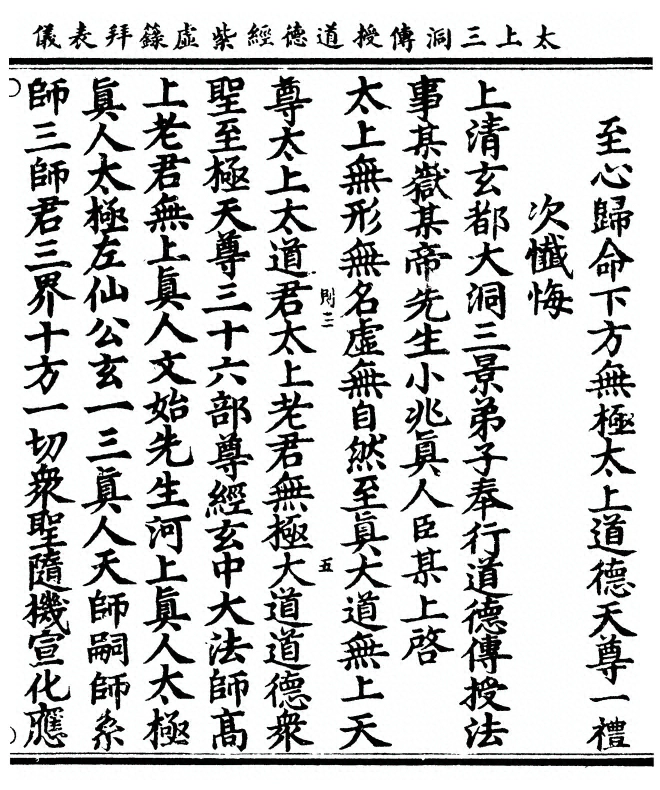 太上三洞傳授道德經紫虛籙拜表儀
至心歸命下方無極太上道德天尊一禮
次懺悔
上清玄都大洞三景弟子奉行道德傳授法
事某嶽某帝先生小兆眞人臣某上啓
太上無形無名虛無自然至眞大道無上天
則二
五
尊太上太道君太上老君無極大道道德衆
聖至極天尊三十六部尊經玄中大法師髙
上老君無上眞人文始先生河上眞人太極
眞人太極左仙公玄一三眞人天師嗣師系
師三師君三界十方一切衆聖隨機宣化應